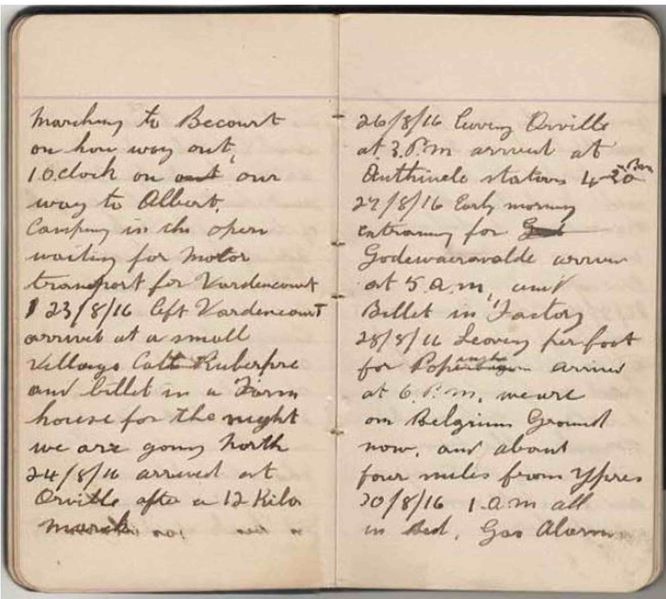 Marching to Becourt
on how way out,
1 Oclock on out our
way to Albert.
Camping in the open
waiting for Motor
transport for Vardencourt
23/8/16 left Vardencourt
arrived at a small
Village Call Ruberpre
and billet in a Farm
house for the night
we are going North
24/8/16 arrived at
Orville after a 12 Kilo
march
26/8/16 leaving Orville
at 3.P.m arrived at
Authieule station 4-20 P.m
27/8/16 Early morning
entraining for
Godewaersvalde arrive
at 5 a.m. and
Billet in Factory
28/8/16 Leaving per foot
for arrived
at 6 P.m. we are
on Belgium Ground
now, and about
four miles from Ypres
30/8/16 1.a.m all
in Bed, Gas Alarm